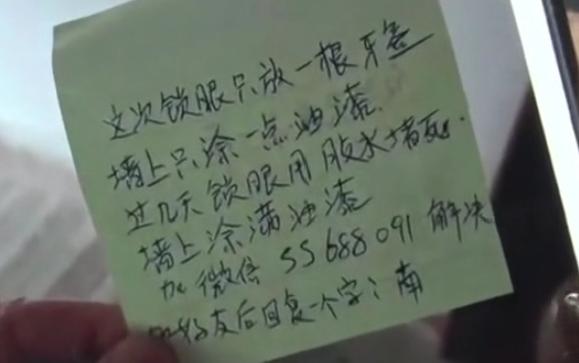 这次锁眼只放一根牙签
墙上只涂一点油漆.
过几天锁眼用胶水堵死.
墙上涂满油漆
加微信 55688091 解决
加好友后回复一个字: 南